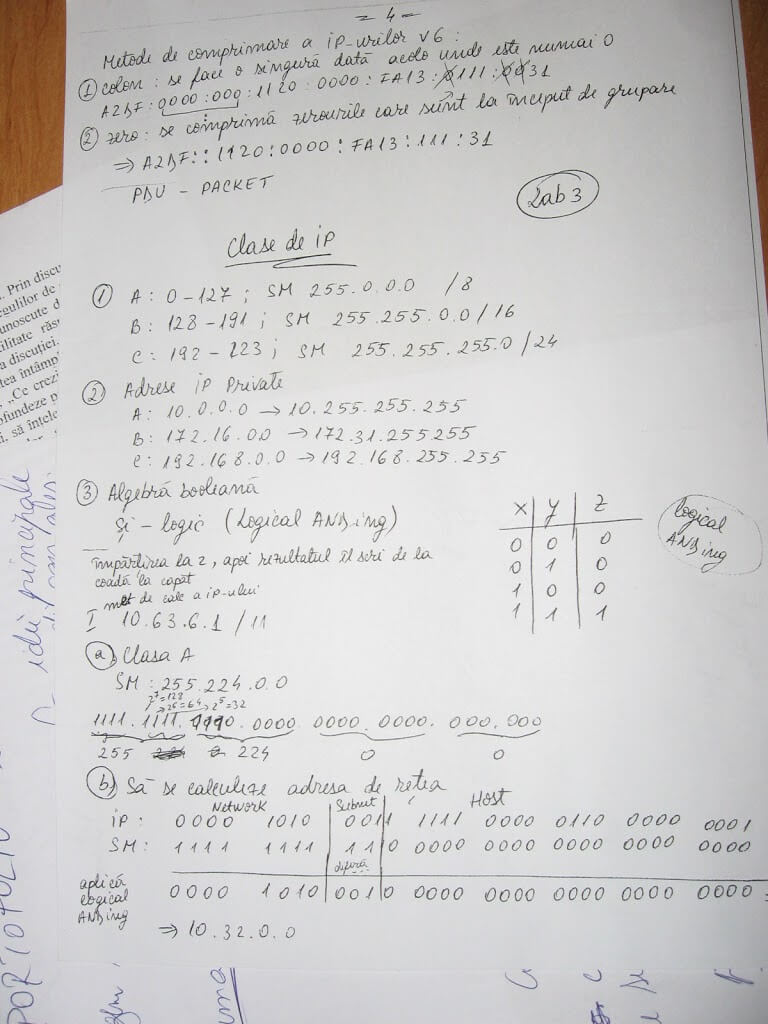 = 4 =
Metode de comprimare a iP-urilor v6 :
① colon : se face o singură dată acolo unde este numai 0
A2DF : 0000 : 000 : 1120 : 0000 : FA13 : 0111 : 0031
② zero : se comprimă zerourile care sunt la început de grupare
⇒ A2DF : : 1120 : 0000 : FA13 : 111 : 31
PDU - PACKET
Lab 3
Clase de iP
① A : 0-127 ; SM 255.0.0.0 /8
B : 128-191 ; SM 255.255.0.0 /16
C : 192-223 ; SM 255.255.255.0 /24
② Adrese iP Private
A : 10.0.0.0 → 10.255.255.255
B : 172.16.0.0 → 172.31.255255
C : 192.168.0.0 → 192.168.255.255
③ Algebră booleană
Și - logic (Logical ANDing)
x y z
0 0 0
0 1 0
1 0 0
1 1 1
logical
ANDing
împărțirea la 2, apoi rezultatul îl scri de la
coadă la capăt
de calc a iP-ului
I 10.63.6.1 /11
ⓐ Clasa A
SM : 255.224.0.0
2⁷=128
→2⁶=64 → 2⁵=32
1111.1111.1110.0000 0000.0000. 000.000
255 224 0 0
ⓑ Să se calculeze adresa de rețea
Network Subnet Host
iP : 0000 1010 0011 1111 0000 0110 0000 0001
SM : 1111 1111 110 0000 0000 0000 0000 0000
diferă
aplică
Logical
ANDing
0000 1010 0010 0000 0000 0000 0000 0000
⇒ 10.32.0.0
. Prin discu
gulilor de
unoscute d
ilitate răs
a discuției.
tea întâmpl
„Ce crezi
ofundeze p
i, să înțele
idii principale
PORTOFOLIU